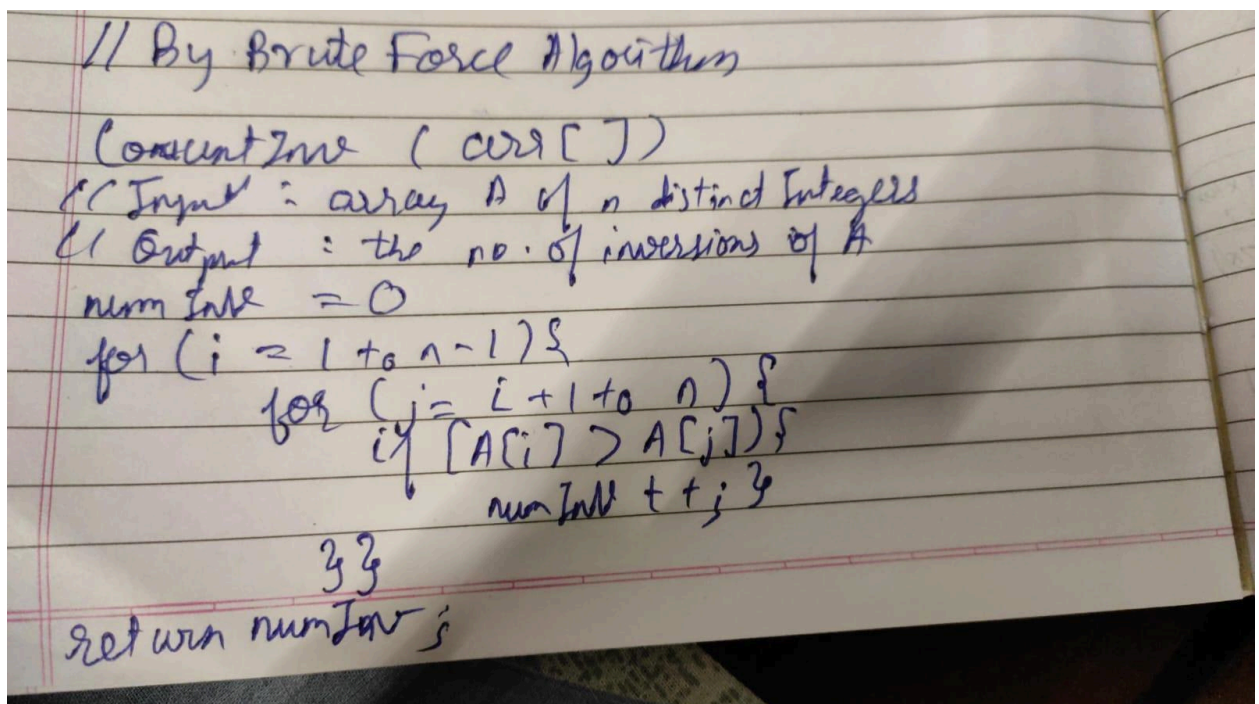 // By Brute Force Algorithm
CountInv ( arr [ ])
// Input : array A of n distinct Integers
// Output : the no. of inversions of A
num Inv = 0
for (i = 1 to n-1){
for (j= i+1 to n) {
if [A[i] > A[j]){
num Inv ++; }
}}
return numInv ;